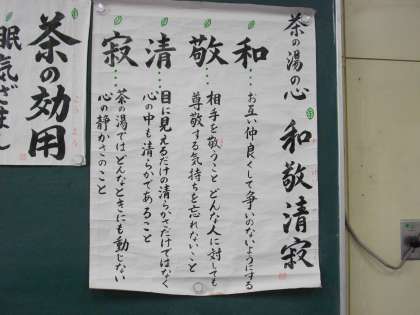 茶の湯の心 和敬清寂
和…お互い仲良くして争いのないようにする
敬…相手を敬うこと どんな人に対しても
尊敬する気持ちを忘れないこと
清…目に見えるだけの清らかさだけではなく
心の中も清らかであること
寂…茶の湯ではどんなときにも動じない
心の静かさのこと
茶の効用
こうよう
眠気ざまし